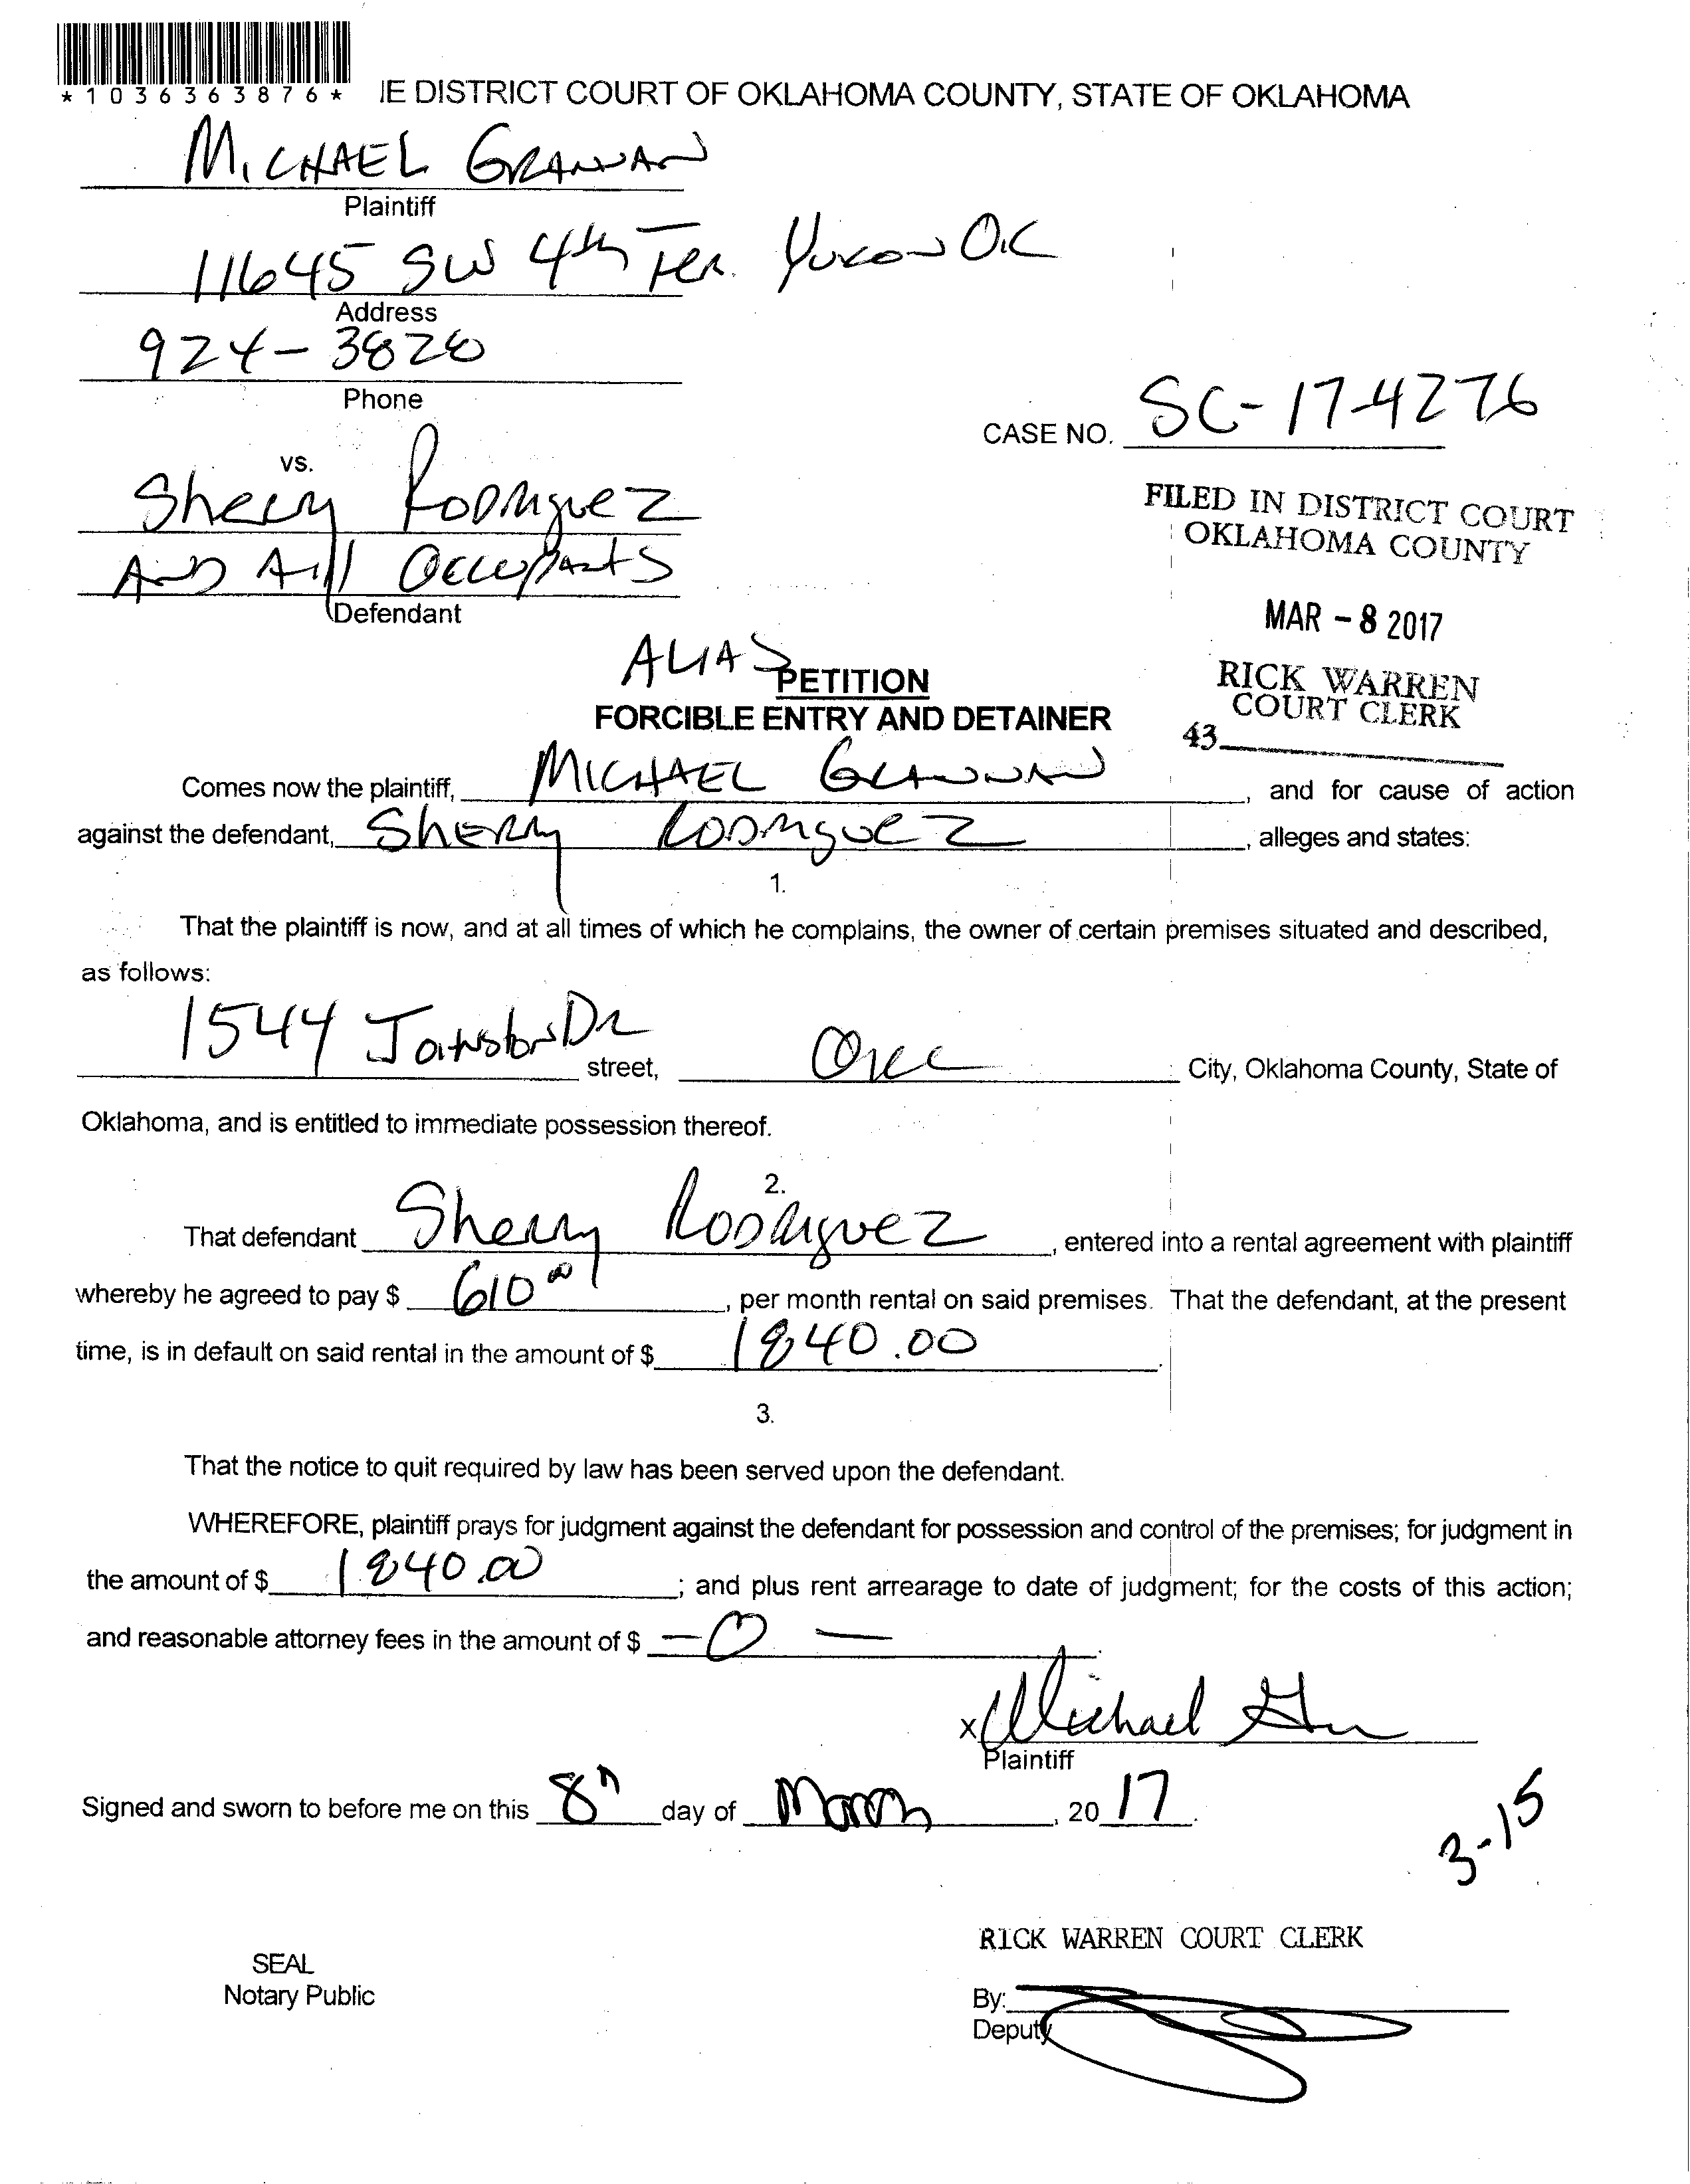 *1036363876*
IE DISTRICT COURT OF OKLAHOMA COUNTY, STATE OF OKLAHOMA
MICHAEL GRANNAN
Plaintiff
11645 SW 4th Ter. Yukon OK
Address
924-3828
Phone
CASE NO. SC-17-4276
vs.
Sherry Rodriguez
And All Occupants
Defendant
FILED IN DISTRICT COURT
OKLAHOMA COUNTY
MAR - 8 2017
RICK WARREN
COURT CLERK
43
ALIAS PETITION
FORCIBLE ENTRY AND DETAINER
Comes now the plaintiff, MICHAEL GRANNAN, and for cause of action
against the defendant, Sherry Rodriguez, alleges and states:
1.
That the plaintiff is now, and at all times of which he complains, the owner of certain premises situated and described,
as follows:
1544 Dr street, OKC City, Oklahoma County, State of
Oklahoma, and is entitled to immediate possession thereof.
2.
That defendant Sherry Rodriguez, entered into a rental agreement with plaintiff
whereby he agreed to pay $ 610 00, per month rental on said premises. That the defendant, at the present
time, is in default on said rental in the amount of $ 1840.00.
3.
That the notice to quit required by law has been served upon the defendant.
WHEREFORE, plaintiff prays for judgment against the defendant for possession and control of the premises; for judgment in
the amount of $ 1840.00; and plus rent arrearage to date of judgment; for the costs of this action;
and reasonable attorney fees in the amount of $ -0-.
X Michael
Plaintiff
Signed and sworn to before me on this 8th day of March, 2017.
3-15
RICK WARREN COURT CLERK
SEAL
Notary Public
By:
Deputy